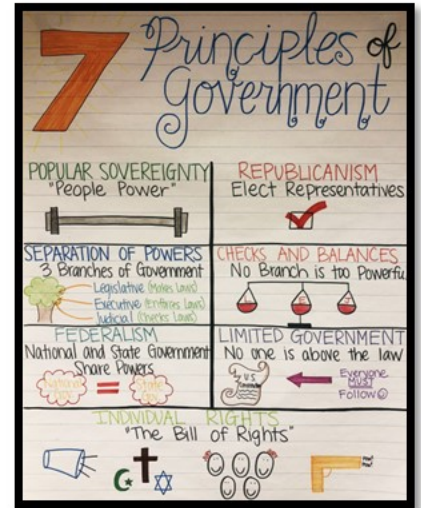 7 Principles of
Government
POPULAR SOVEREIGNTY
"People Power"
REPUBLICANISM
Elect Representatives
SEPARATION OF POWERS
3 Branches of Government
Legislative (Makes Laws)
Executive (Enforces Laws)
Judicial (Checks Laws)
CHECKS AND BALANCES
No Branch is too Powerful
L E J
FEDERALISM
National and State Government
Share Powers
National
=
State
LIMITED GOVERNMENT
No one is above the law
U.S.
Everyone
MUST
Follow
INDIVIDUAL RIGHTS
"The Bill of Rights"